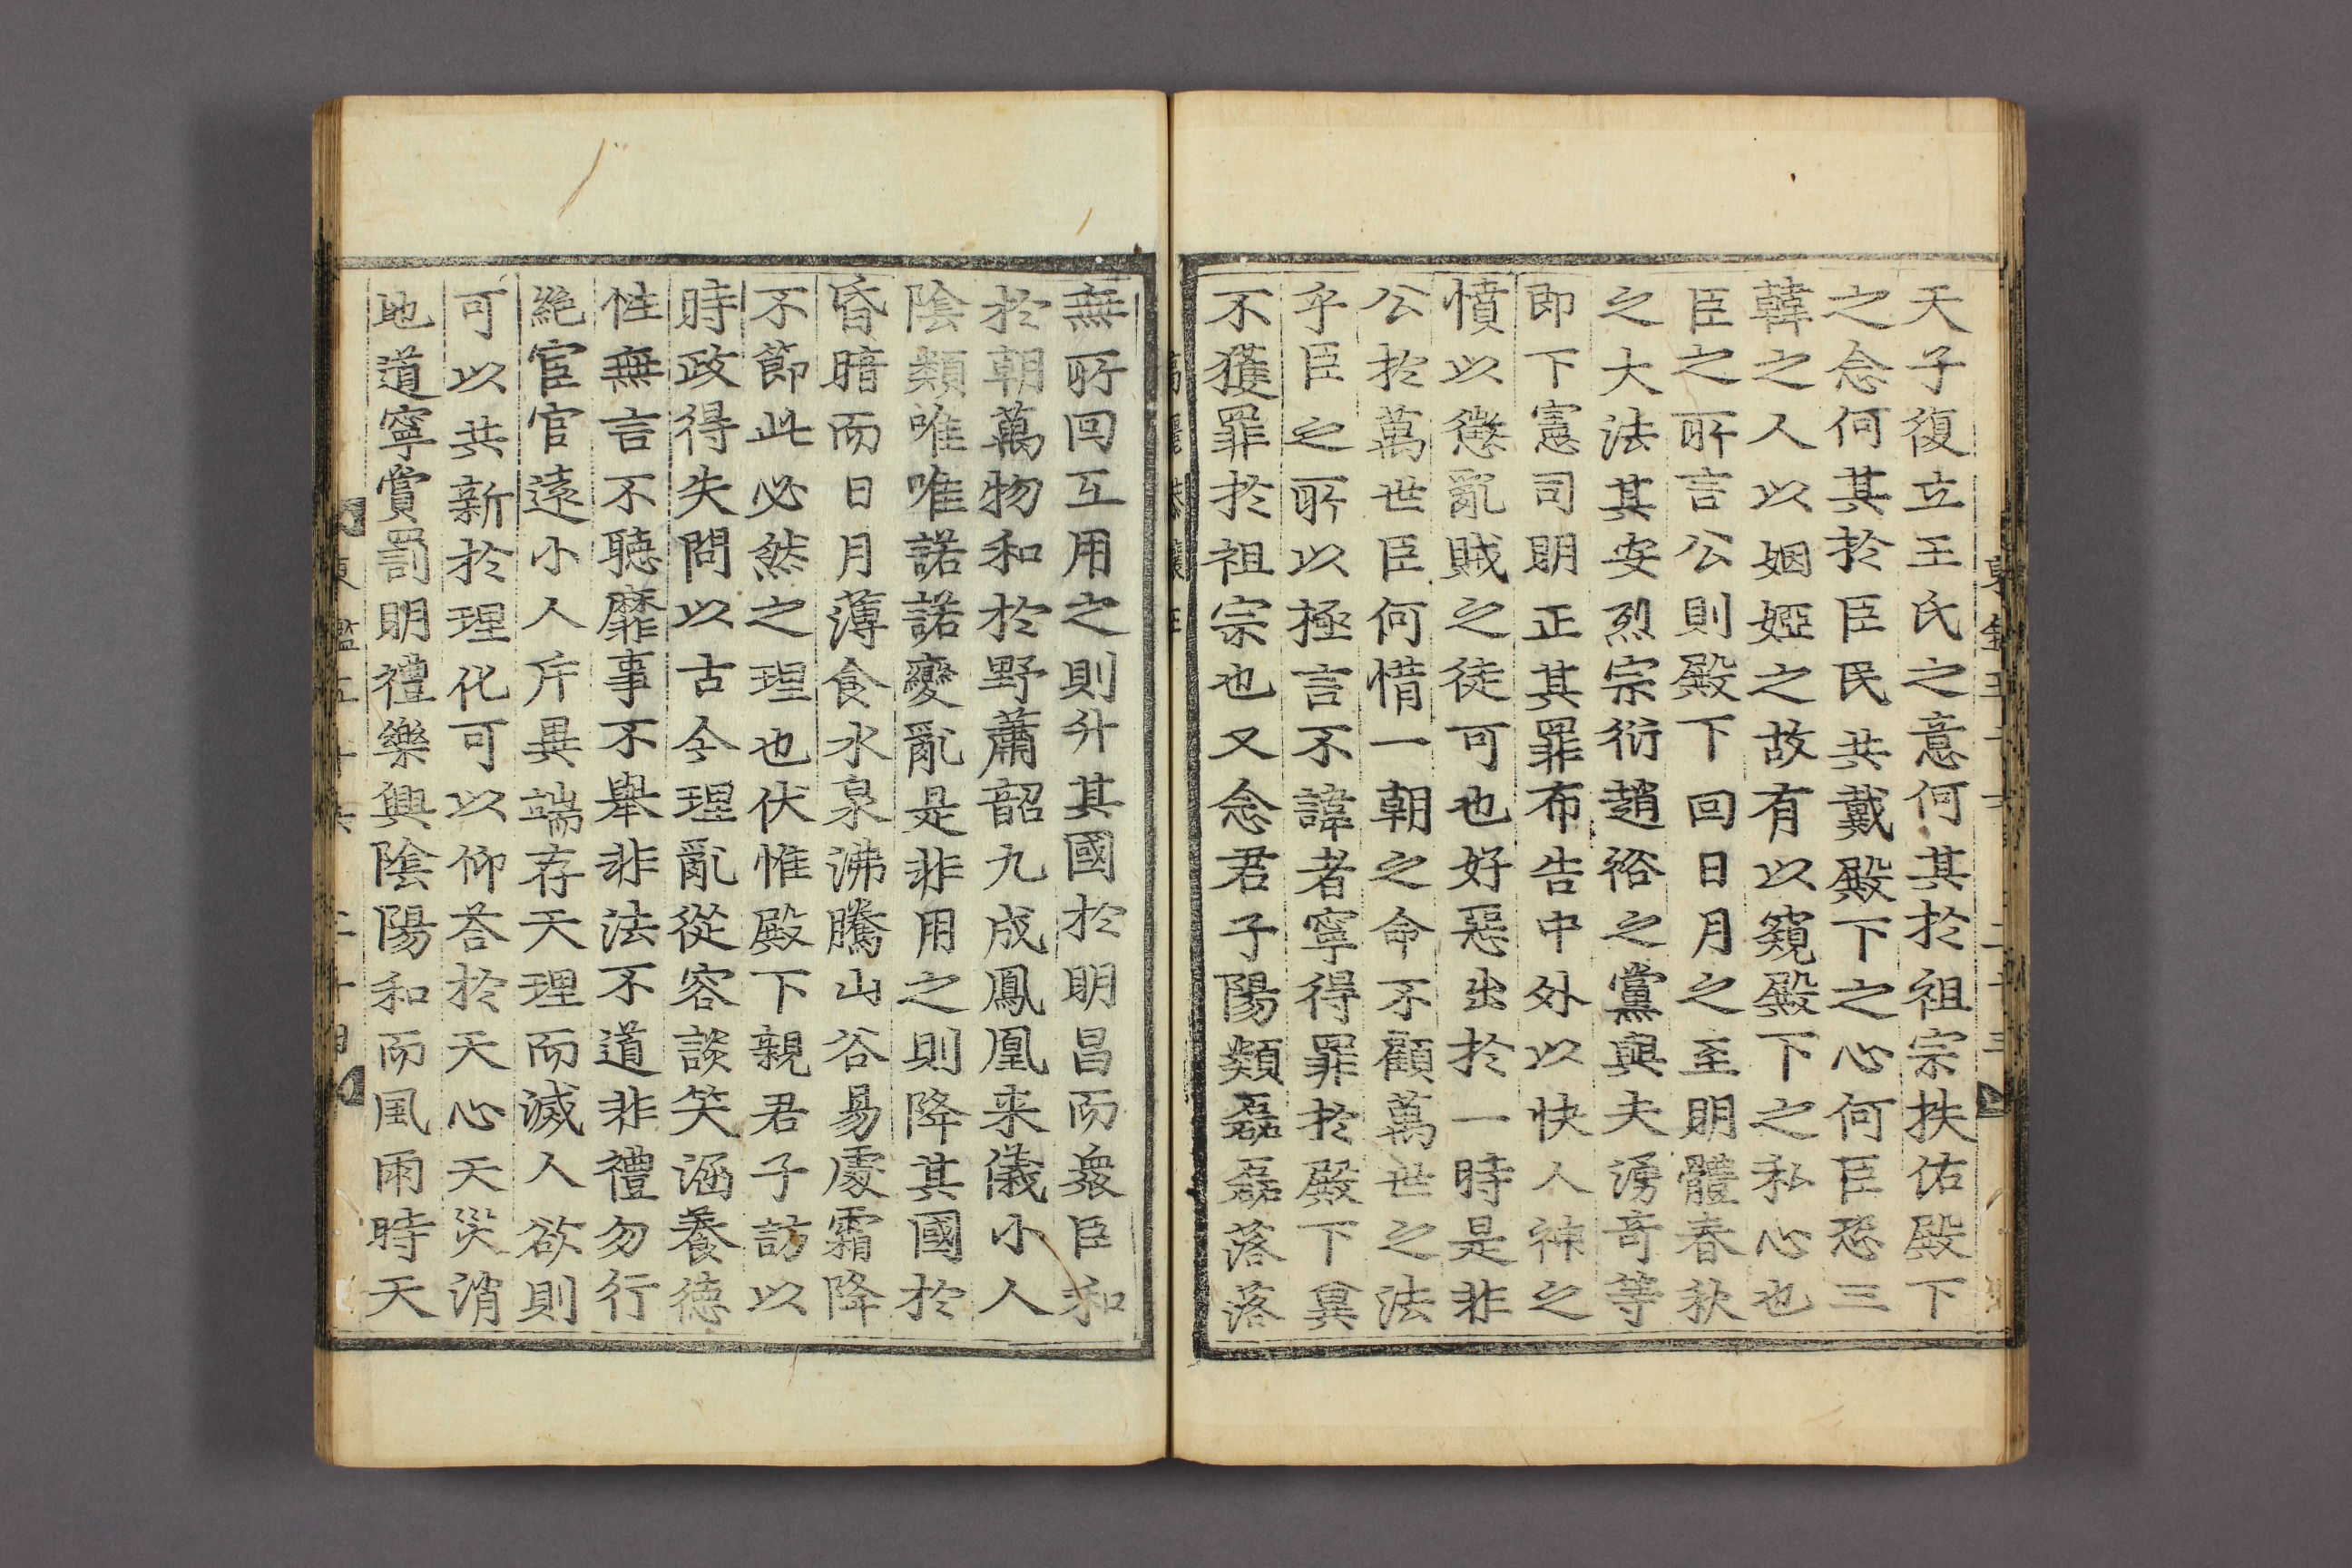 天子復立王氏之意何其於祖宗扶佑殿下
之念何其於臣民共戴殿下之心何臣恐三
韓之人以姻婭之故有以窺殿下之私心也
臣之所言公則殿下回日月之至明體春秋
之大法其安烈宗衍趙裕之黨與夫湧奇等
即下憲司明正其罪布告中外以快人神之
憤以懲亂賊之徒可也好惡出於一時是非
公於萬世臣何惜一朝之命不顧萬世之法
乎臣之所以極言不諱者寧得罪於殿下冀
不獲罪於祖宗也又念君子陽類磊磊落落
無所回互用之則升其國於明昌而衆臣和
於朝萬物和於野蕭韶九成鳳凰来儀小人
陰類唯唯諾諾變亂是非用之則降其國於
昏暗而日月薄食水泉沸騰山谷易處霜降
不節此必然之理也伏惟殿下親君子訪以
時政得失問以古今理亂從容談笑涵養德
性無言不聽靡事不舉非法不道非禮勿行
絶宦官遠小人斥異端存天理而滅人欲則
可以共新於理化可以仰答於天心天災消
地道寧賞罰明禮樂興陰陽和而風雨時天